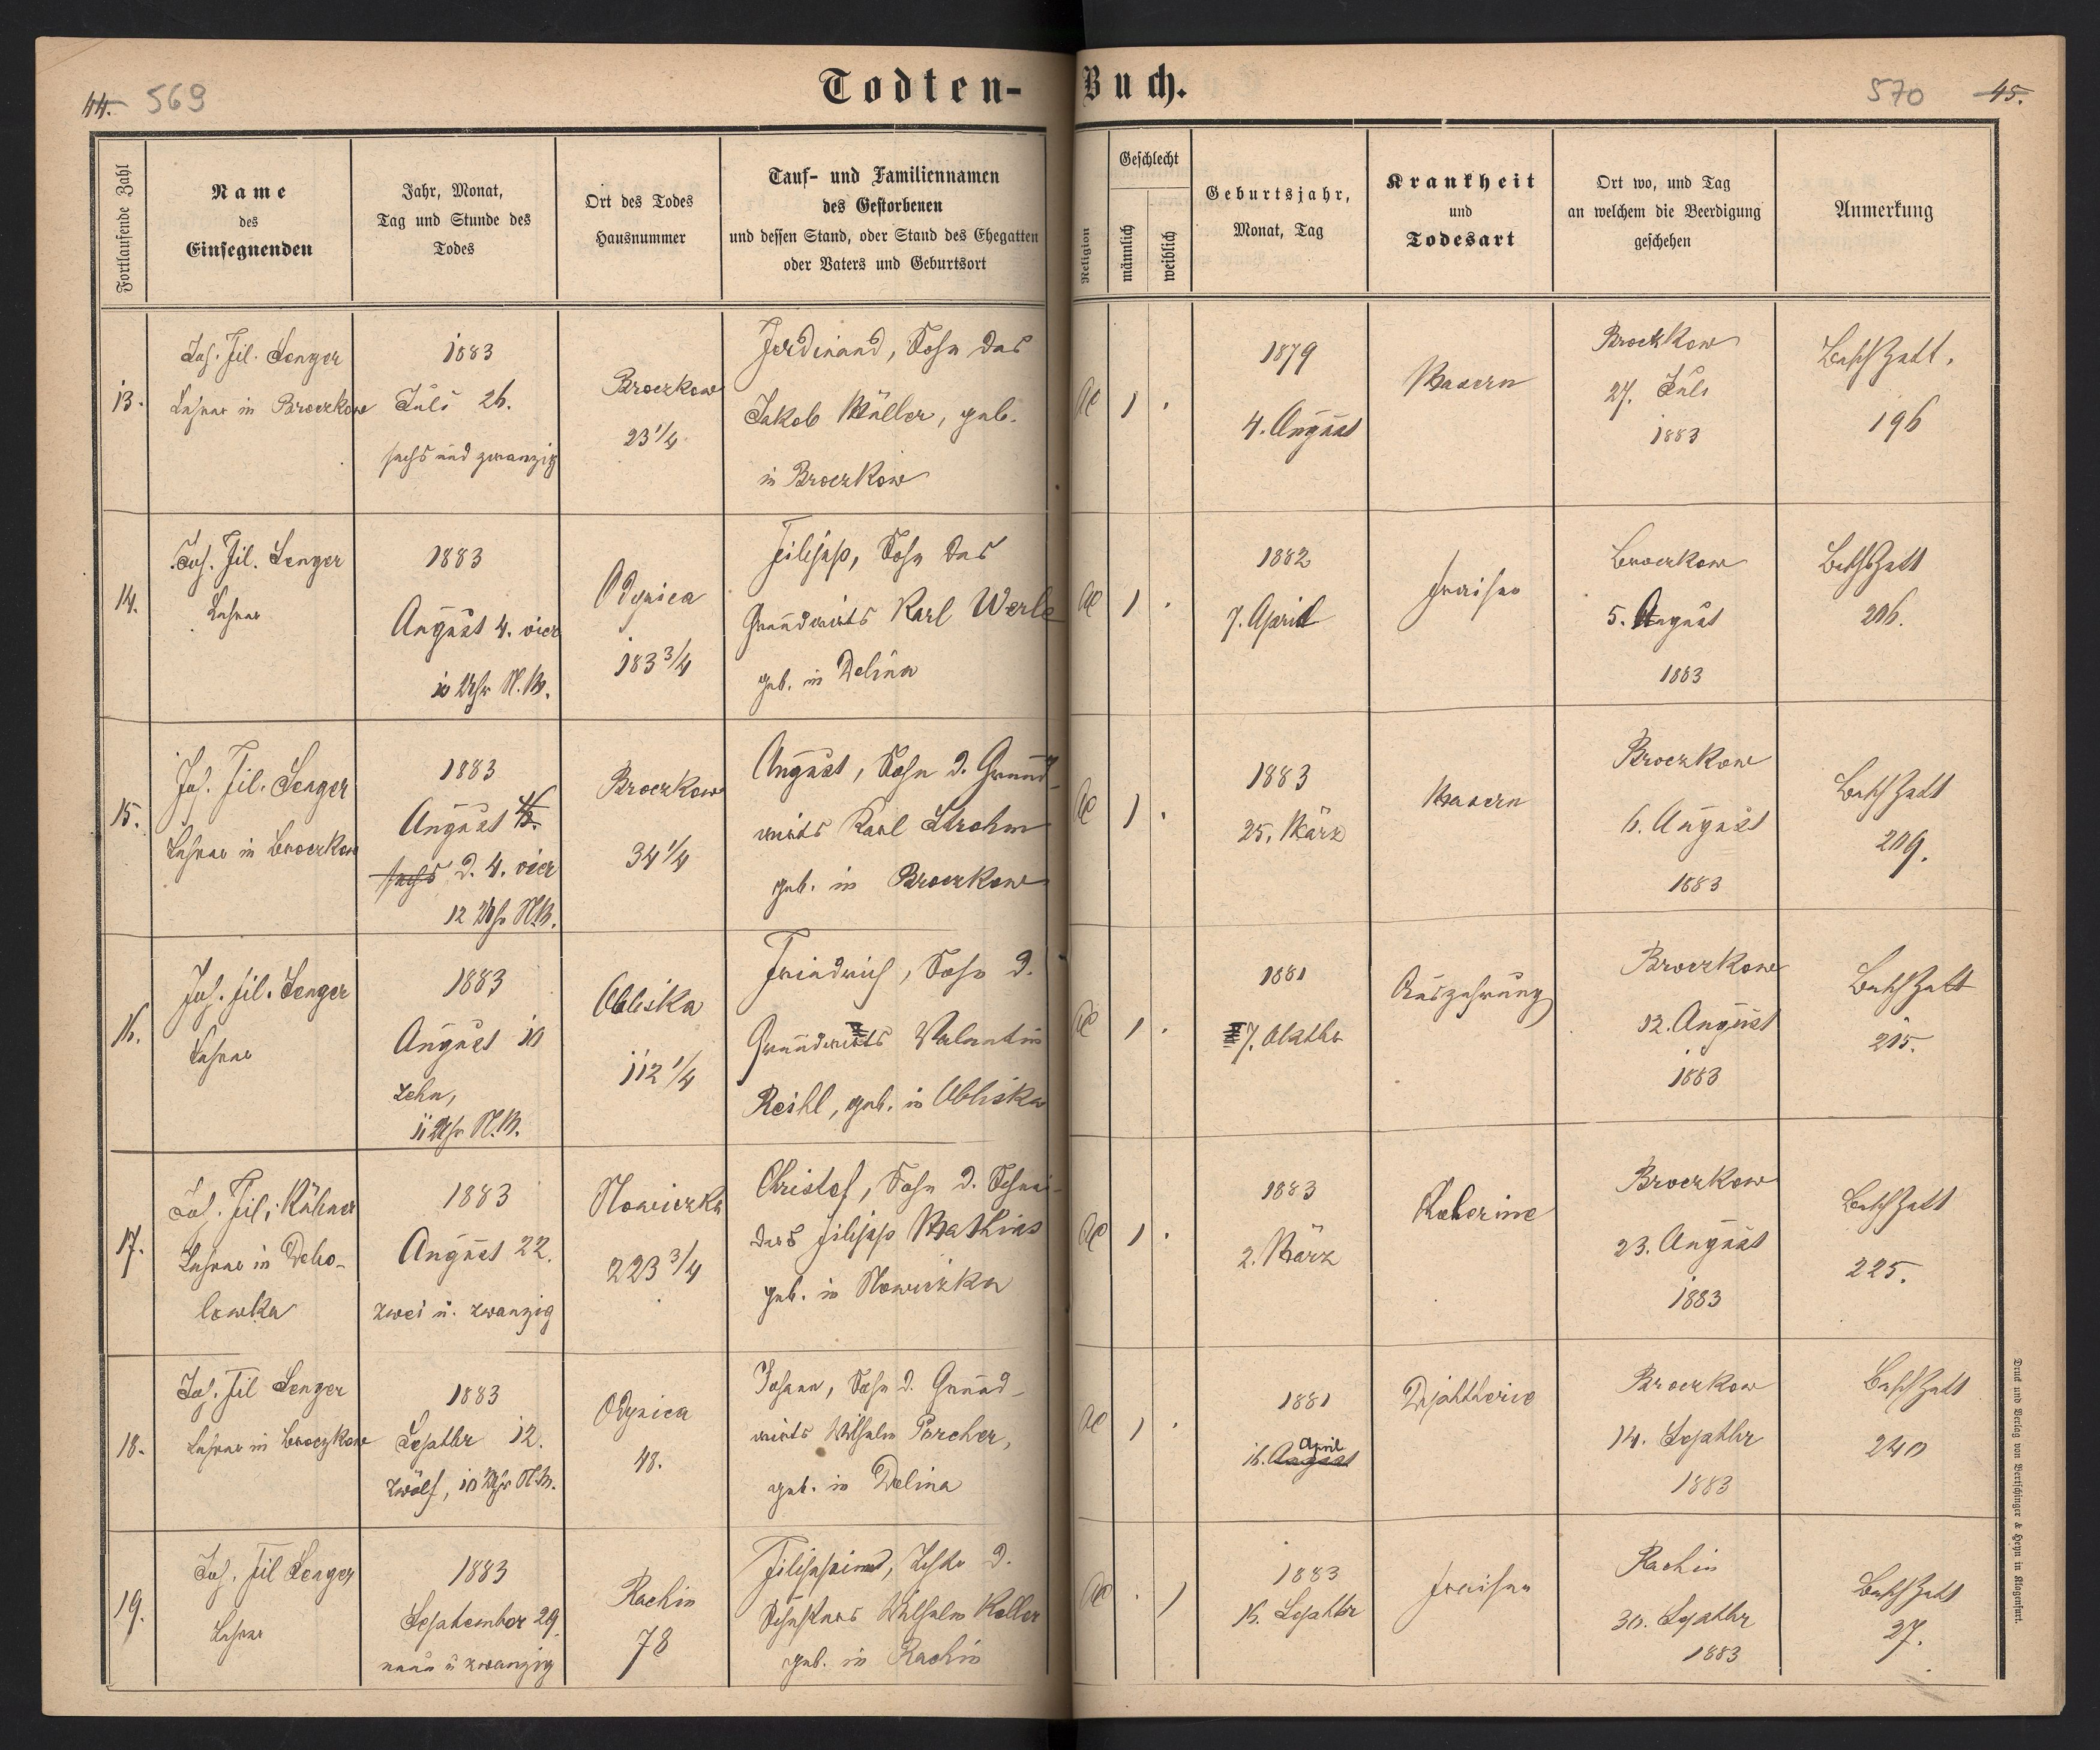 44. 569
Todten-Buch.
570 45.
Fortlaufende Zahl
Name
des
Einsegnenden
Jahr, Monat,
Tag und Stunde des
Todes
Ort des Todes
Hausnummer
Tauf- und Familiennamen
des Gestorbenen
und dessen Stand, oder Stand des Ehegatten
oder Vaters und Geburtsort
Religion
Geschlecht
männlich
weiblich
Geburtsjahr,
Monat, Tag
Krankheit
und
Todesart
Ort wo, und Tag
an welchem die Beerdigung
geschehen
Anmerkung
13.
Joh. Fil. Senger
Lehrer in Broczkow
1883
Juli 26.
sechs und zwanzig
Broczkow
23 1/4
Ferdinand, Sohn des
Jakob Müller, geb.
in Broczkow
1
1879
4. August
Masern
Broczkow
27. Juli
1883
196
14.
Joh. Fil. Senger
Lehrer
1883
August 4. vier
10 Uhr N.M.
Odynica
183 3/4
Filipp, Sohn des
Grundwirts Karl Werle
geb. in Delina
1
1882
7. April
Fraisen
Broczkow
5. August
1883
206.
15.
Joh. Fil. Senger
Lehrer in Broczkow
1883
August
sechs d. 4. vier
12 Uhr N.M.
Broczkow
34 1/4
August, Sohn d. Grund-
wirts Karl Strohm
geb. in Broczkow
1
1883
25. März
Masern
Broczkow
6. August
1883
209.
16.
Joh. Fil. Senger
Lehrer
1883
August 10
zehn,
11 Uhr N.M.
Obliska
112 1/4
Friedrich, Sohn d.
Grundwirts Valentin
Reihl, geb. in Obliska
1
1881
7. Oktbr
Auszehrung
Broczkow
12. August
1883
215.
17.
Joh. Fil. Kühner
Lehrer in Debo-
lowka
1883
August 22.
zwei u. zwanzig
Nowiczka
223 3/4
Christof, Sohn d. Schnei-
ders Filipp Mathias
geb. in Nowiczka
1
1883
2. März
Kolerine
Broczkow
23. August
1883
225.
18.
Joh. Fil Senger
Lehrer in Broczkow
1883
Septbr 12.
zwölf, 10 Uhr N.M.
Odynica
48.
Johann, Sohn d. Grund-
wirts Wilhelm Porcher,
geb. in Delina
1
1881
April
16. August
Diphtherie
Broczkow
14. Septbr
1883
240
19.
Joh. Fil Senger
Lehrer
1883
September 29.
neun u zwanzig
Rachin
78
d.
Wilhelm Keller
geb. in Rachin
1
1883
16. Septbr
Fraisen
Rachin
30. Septbr
1883
27.
Druck und Verlag von Bertschinger & Heyn in Klagenfurt.